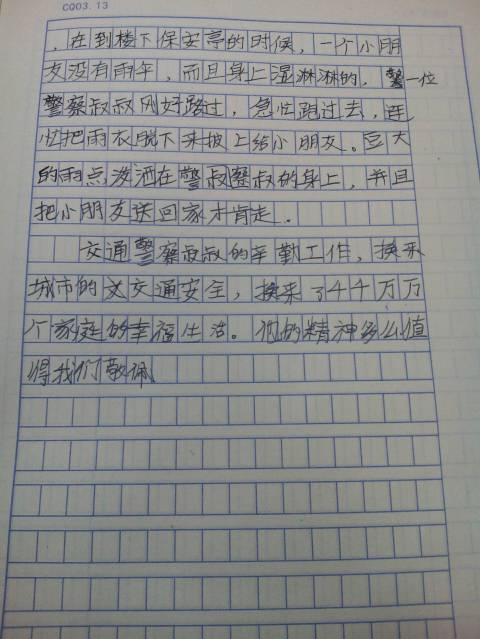 CQ03.13
，在到楼下保安亭的时候，一个小朋
友没有雨伞，而且身上湿淋淋的，一位
警察叔叔刚好路过，急忙跑过去，连
忙把雨衣脱下来披上给小朋友。豆大
的雨点泼洒在警察叔叔的身上，并且
把小朋友送回家才肯走。
交通警察叔叔的辛勤工作，换来
城市的交通安全，换来了千千万万
个家庭的幸福生活。他的精神多么值
得我们敬佩